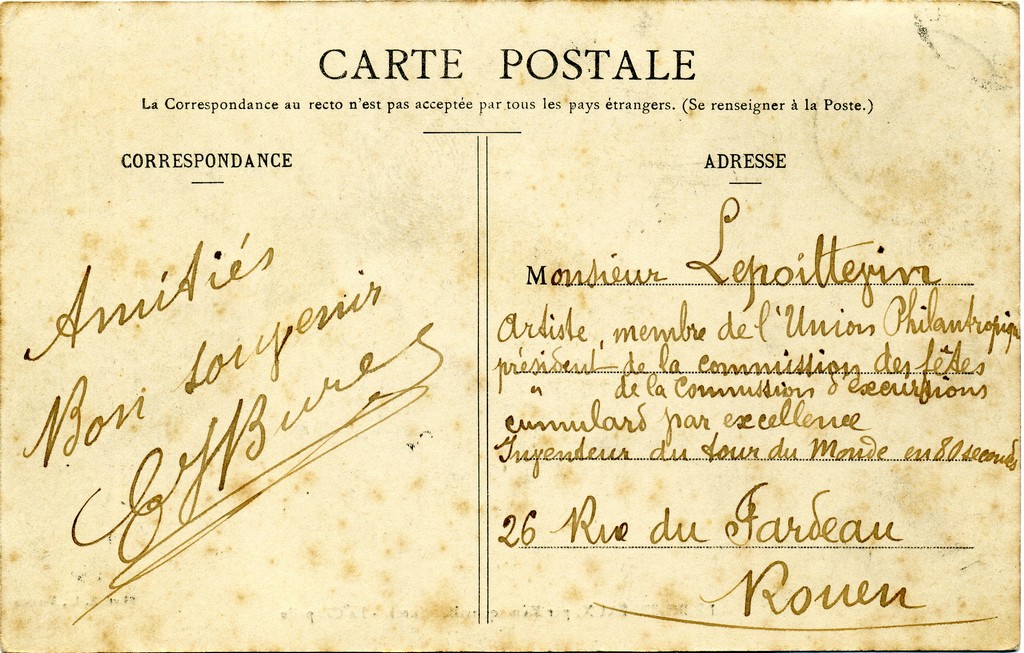 CARTE POSTALE
La Correspondance au recto n'est pas acceptée par tous les pays étrangers. (Se renseigner à la Poste.)
CORRESPONDANCE
Amitiés
Bon souvenir
ADRESSE
Monsieur Lepoittevin
Artiste, membre de l'Union Philantropique
président de la commission des fêtes
" de la Commission d'excursions
cumulard par excellence
Inventeur du tour du Monde en 80 secondes
26 Rue du Fardeau
Rouen